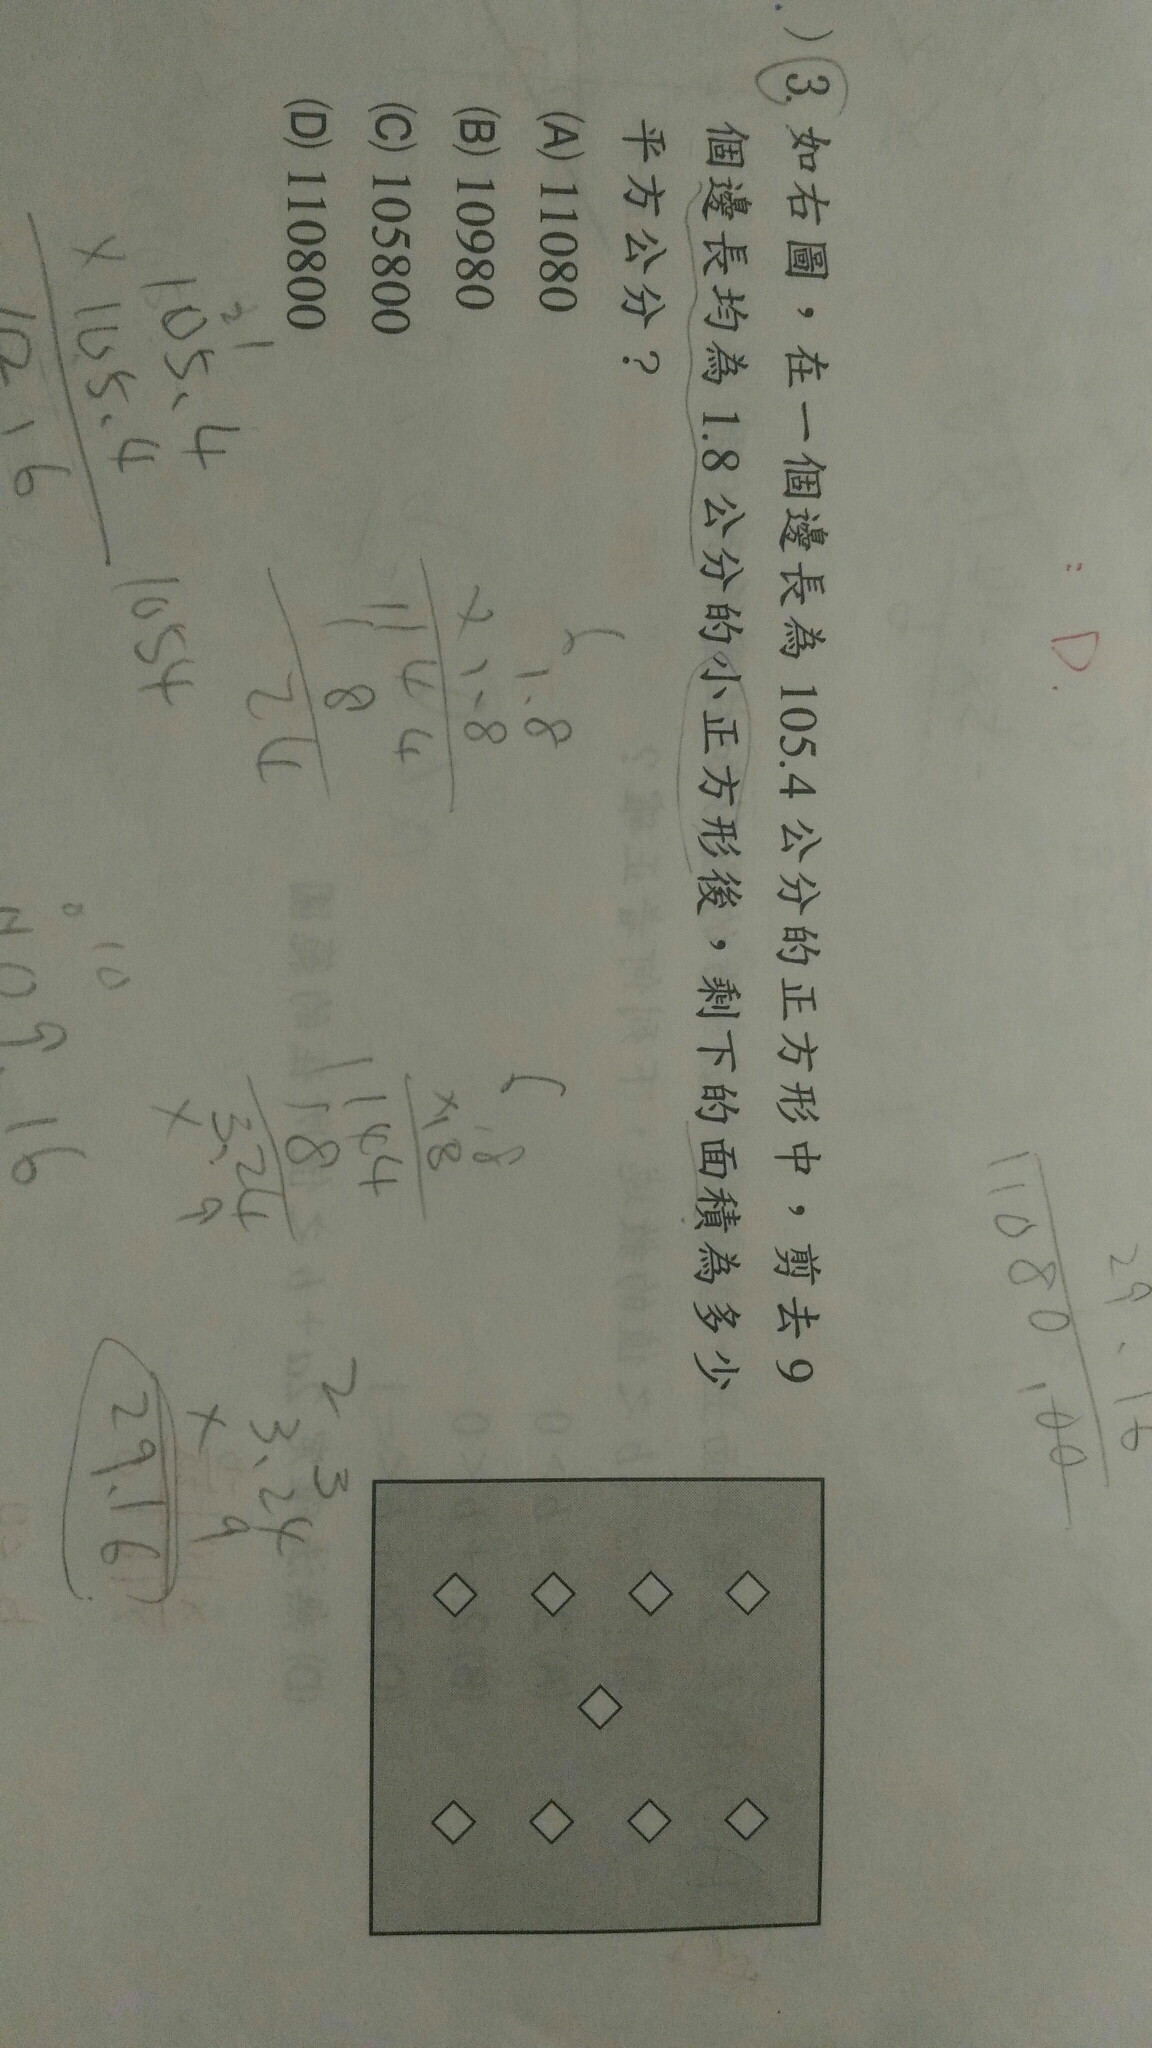 : D.
29.16
11080.00
) 3. 如右圖，在一個邊長為 105.4 公分的正方形中，剪去 9
個邊長均為 1.8 公分的小正方形後，剩下的面積為多少
平方公分？
(A) 11080
(B) 10980
(C) 105800
(D) 110800
1.8
× 1.8
144
18
1.8
×1.8
144
18
3.24
× 9
2 3
3.24
× 9
29.16
2 1
105.4
× 105.4
1054
10